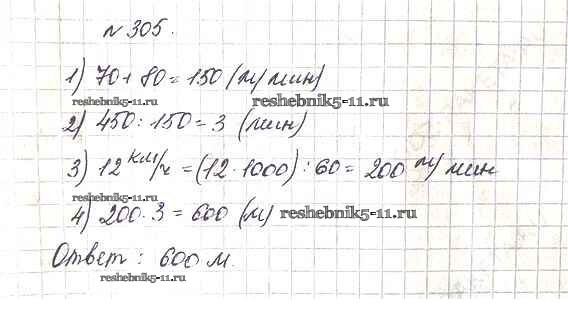 № 305.
1) 70 + 80 = 150 (м/мин)
reshebnik5-11.ru
reshebnik5-11.ru
2) 450 : 150 = 3 (мин)
3) 12 км/ч = (12 · 1000) : 60 = 200 м/мин
reshebnik5-11.ru
4) 200 · 3 = 600 (м)
reshebnik5-11.ru
Ответ: 600 м.
reshebnik5-11.ru